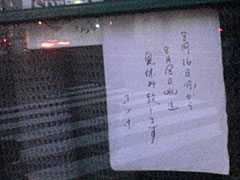 8月16日(月)から
8月18日(水)迄
夏休み致します